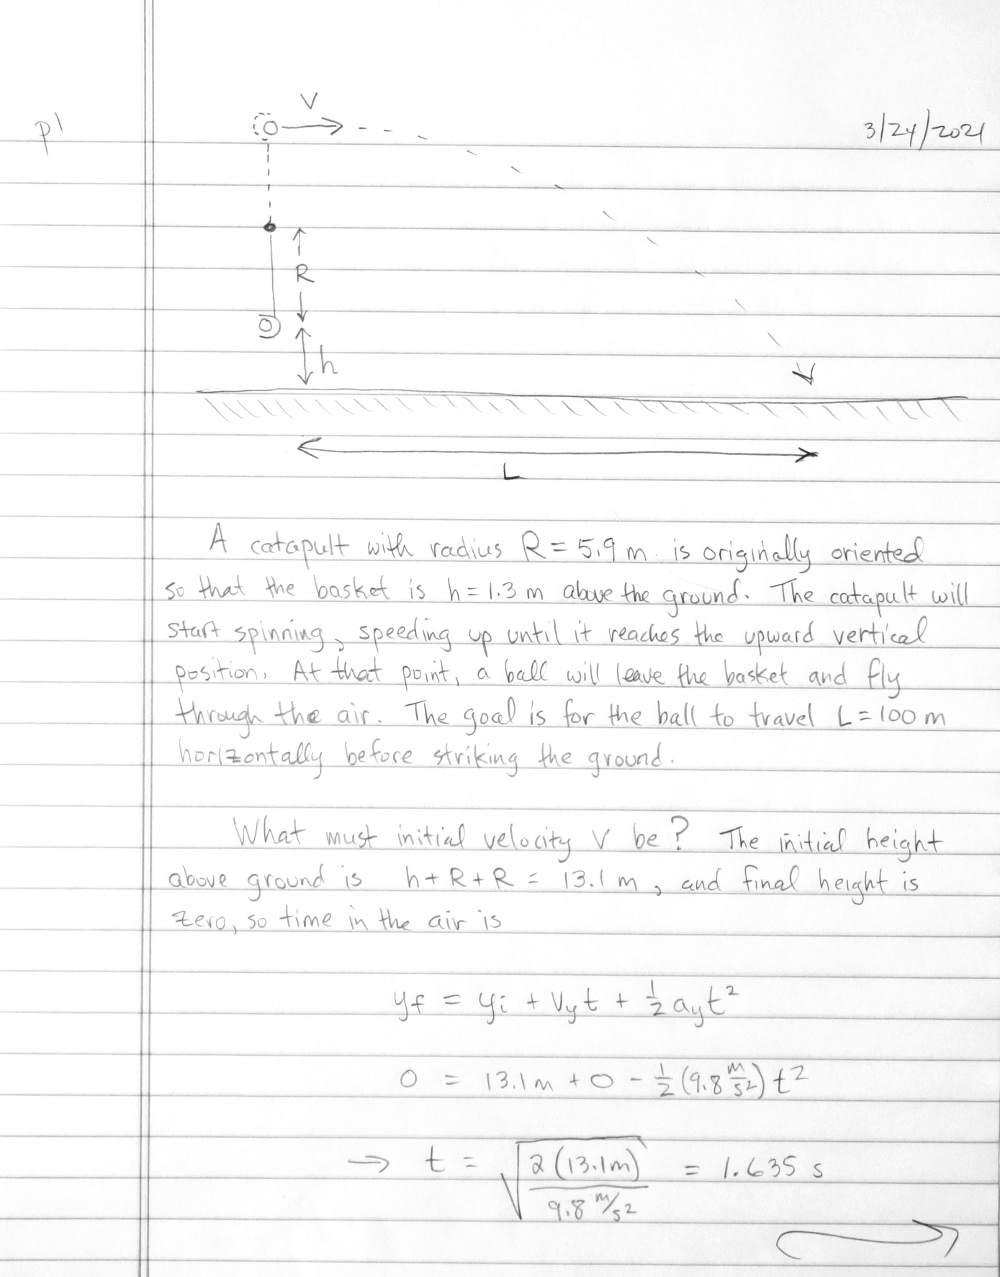 p1
3/24/2021
V
R
h
L
A catapult with radius R = 5.9 m is originally oriented
so that the basket is h = 1.3 m above the ground. The catapult will
start spinning, speeding up until it reaches the upward vertical
position. At that point, a ball will leave the basket and fly
through the air. The goal is for the ball to travel L = 100 m
horizontally before striking the ground.
What must initial velocity V be? The initial height
above ground is h + R + R = 13.1 m, and final height is
zero, so time in the air is
yf = yi + Vyt + ½ ayt²
0 = 13.1m + 0 - ½ (9.8 m/s²) t²
→ t = √(2(13.1m)/9.8 m/s²) = 1.635 s